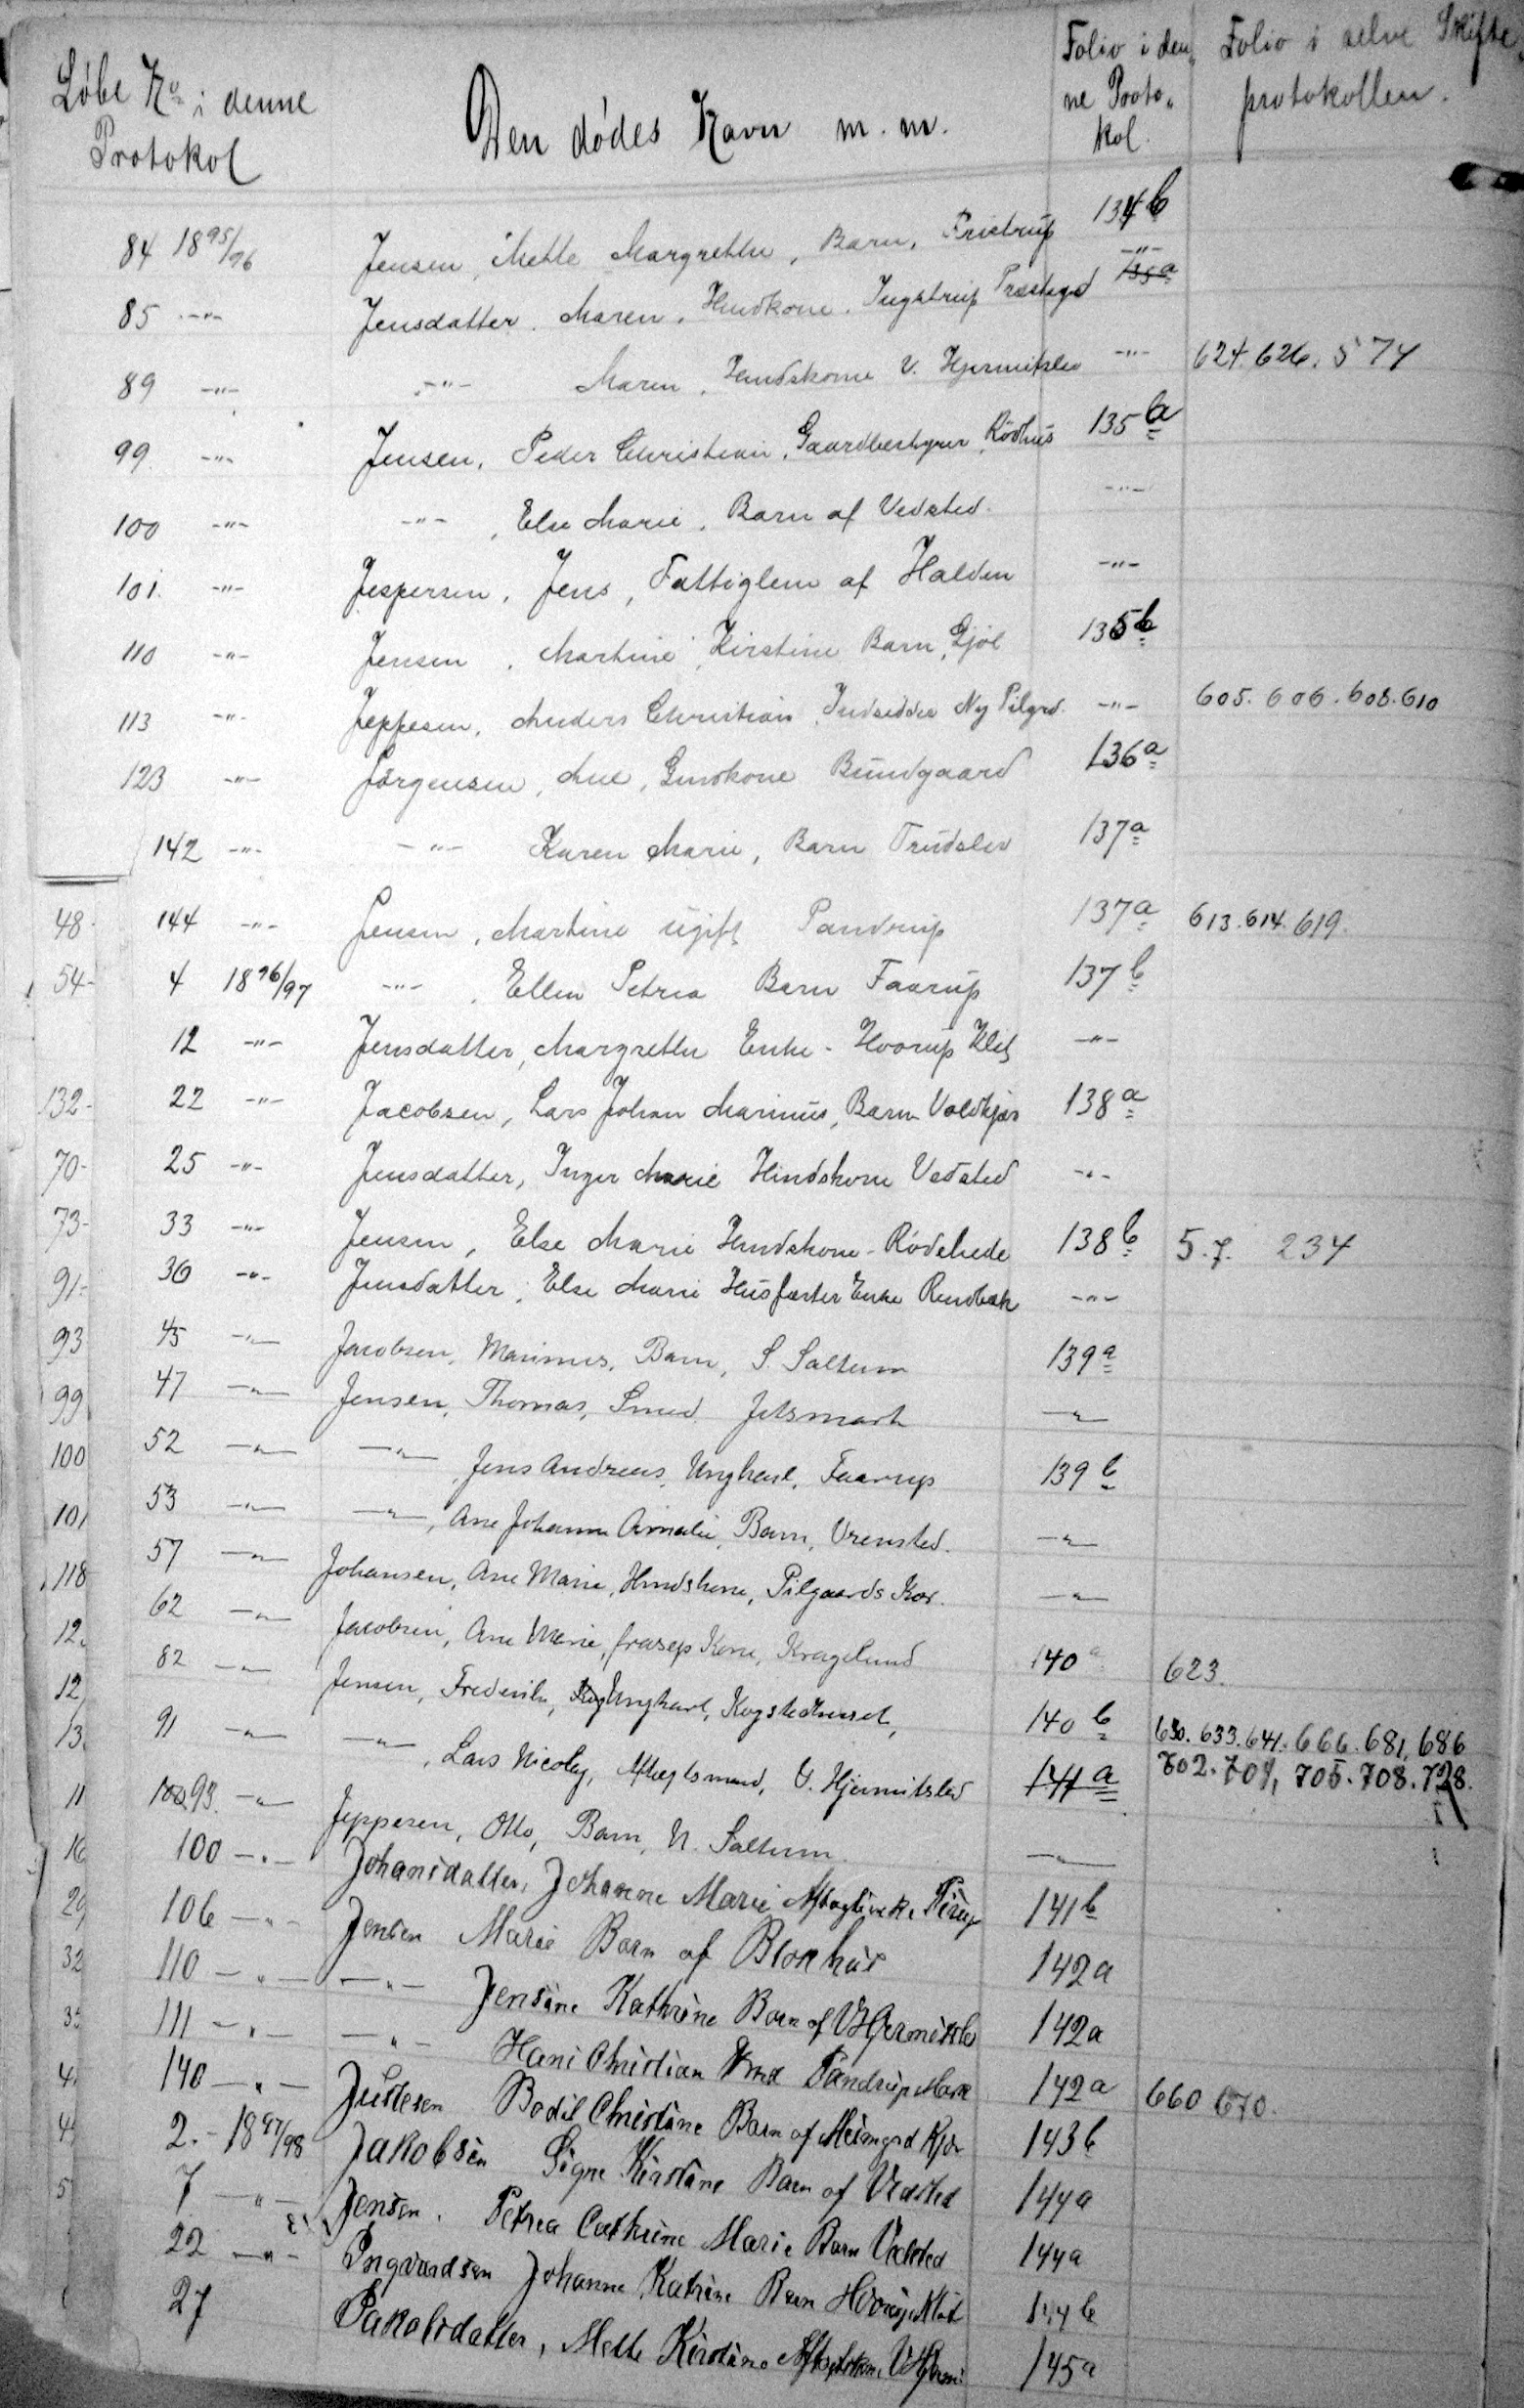 Løbe No i denne Protokol | Den dødes Navn m. m. | Folio i denne Protokol. | Folio i selve Skifteprotokollen.
84 1895/96 Jensen, Mette Margrethe, Barn, Fristrup 134b
85 -"- Jensdatter, Maren, Hmdkone, Ingstrup Præstegd -"- 135a
89 -"- -"- Maren, Hmdskone V. Hjermitslev -"- 624. 626. 574
99 -"- Jensen, Peder Christian, Gaardbestyrer, Rødhus 135a
100 -"- -"-, Else Marie, Barn af Vedsted. -"-
101. -"- Jespersen, Jens, Fattiglem af Halden -"-
110 -"- Jensen, Martine Kirstine Barn, Gjøl 135b
113 -"- Jeppesen, Anders Christian, Indsidder Ny Pilgrd. -"- 605. 606. 608. 610
123 -"- Jörgensen, Ane, Gmdkone Bundgaard 136a
142 -"- -"- Karen Marie, Barn Trudslev 137a
48- 144 -"- Jensen, Martine ugift Pandrup 137a 613. 614. 619.
54- 4 1896/97 -"-, Ellen Petrea Barn Faarup 137b
12 -"- Jensdatter, Margrethe Enke - Hvorup Klit -"-
132- 22 -"- Jacobsen, Lars Johan Marinus, Barn Voldkjær 138a
70- 25 -"- Jensdatter, Inger Marie Hmdskone Vedsted -"-
73- 33 -"- Jensen, Else Marie Hmdskone - Rødehede 138b 5. 7. 234
91- 36 -"- Jensdatter, Else Marie Husfæster Enke Rendbæk -"-
93 45 -"- Jacobsen, Marinus, Barn, S. Saltum 139a
99 47 -"- Jensen, Thomas, Smed Jetsmark -"-
100 52 -"- -"-, Jens Andreas, Ungkarl, Faarup 139b
101 53 -"- -"-, Ane Johanne Amalie, Barn, Vrensted. -"-
118 57 -"- Johansen, Ane Marie, Hmdskone, Pilgaards Kær. -"-
12. 62 -"- Jacobsen, Ane Marie, frasep Kone, Kragelund 140a 623.
12 82 -"- Jensen, Frederik, Ungkarl, Kogstedhuset, 140b 630. 633. 641. 666. 681. 686
13. 91 -"- -"-, Lars Nicolaj, Aftægtsmand, V. Hjermitslev 141a 702. 704, 705. 708. 728.
11 93. -"- Jeppesen, Otto, Barn, N. Saltum. -"-
16 100 -"- Johansdatter, Johanne Marie Aftægtsenke Pirup 141b
29 106 -"- Jensen Marie Barn af Blokhus 142a
32 110 -"- -"- Jensine Kathrine Barn af V Hjermitslev 142a
33 111 -"- -"- Hans Christian Hmd Pandrup Mark 142a 660 670.
4 140 -"- Justesen Bodil Christine Barn af Kjær 143b
4 2. - 1897/98 Jakobsen Signe Kirstine Barn af Vedsted 144a
5 7 -"- Jensen. Petrea Cathrine Marie Barn Vedsted 144a
22 -"- Ingvardsen Johanne Katrine Barn Hvorup Klit 144b
27 Jakobsdatter, Mette Kirstine V Hjermi 145a